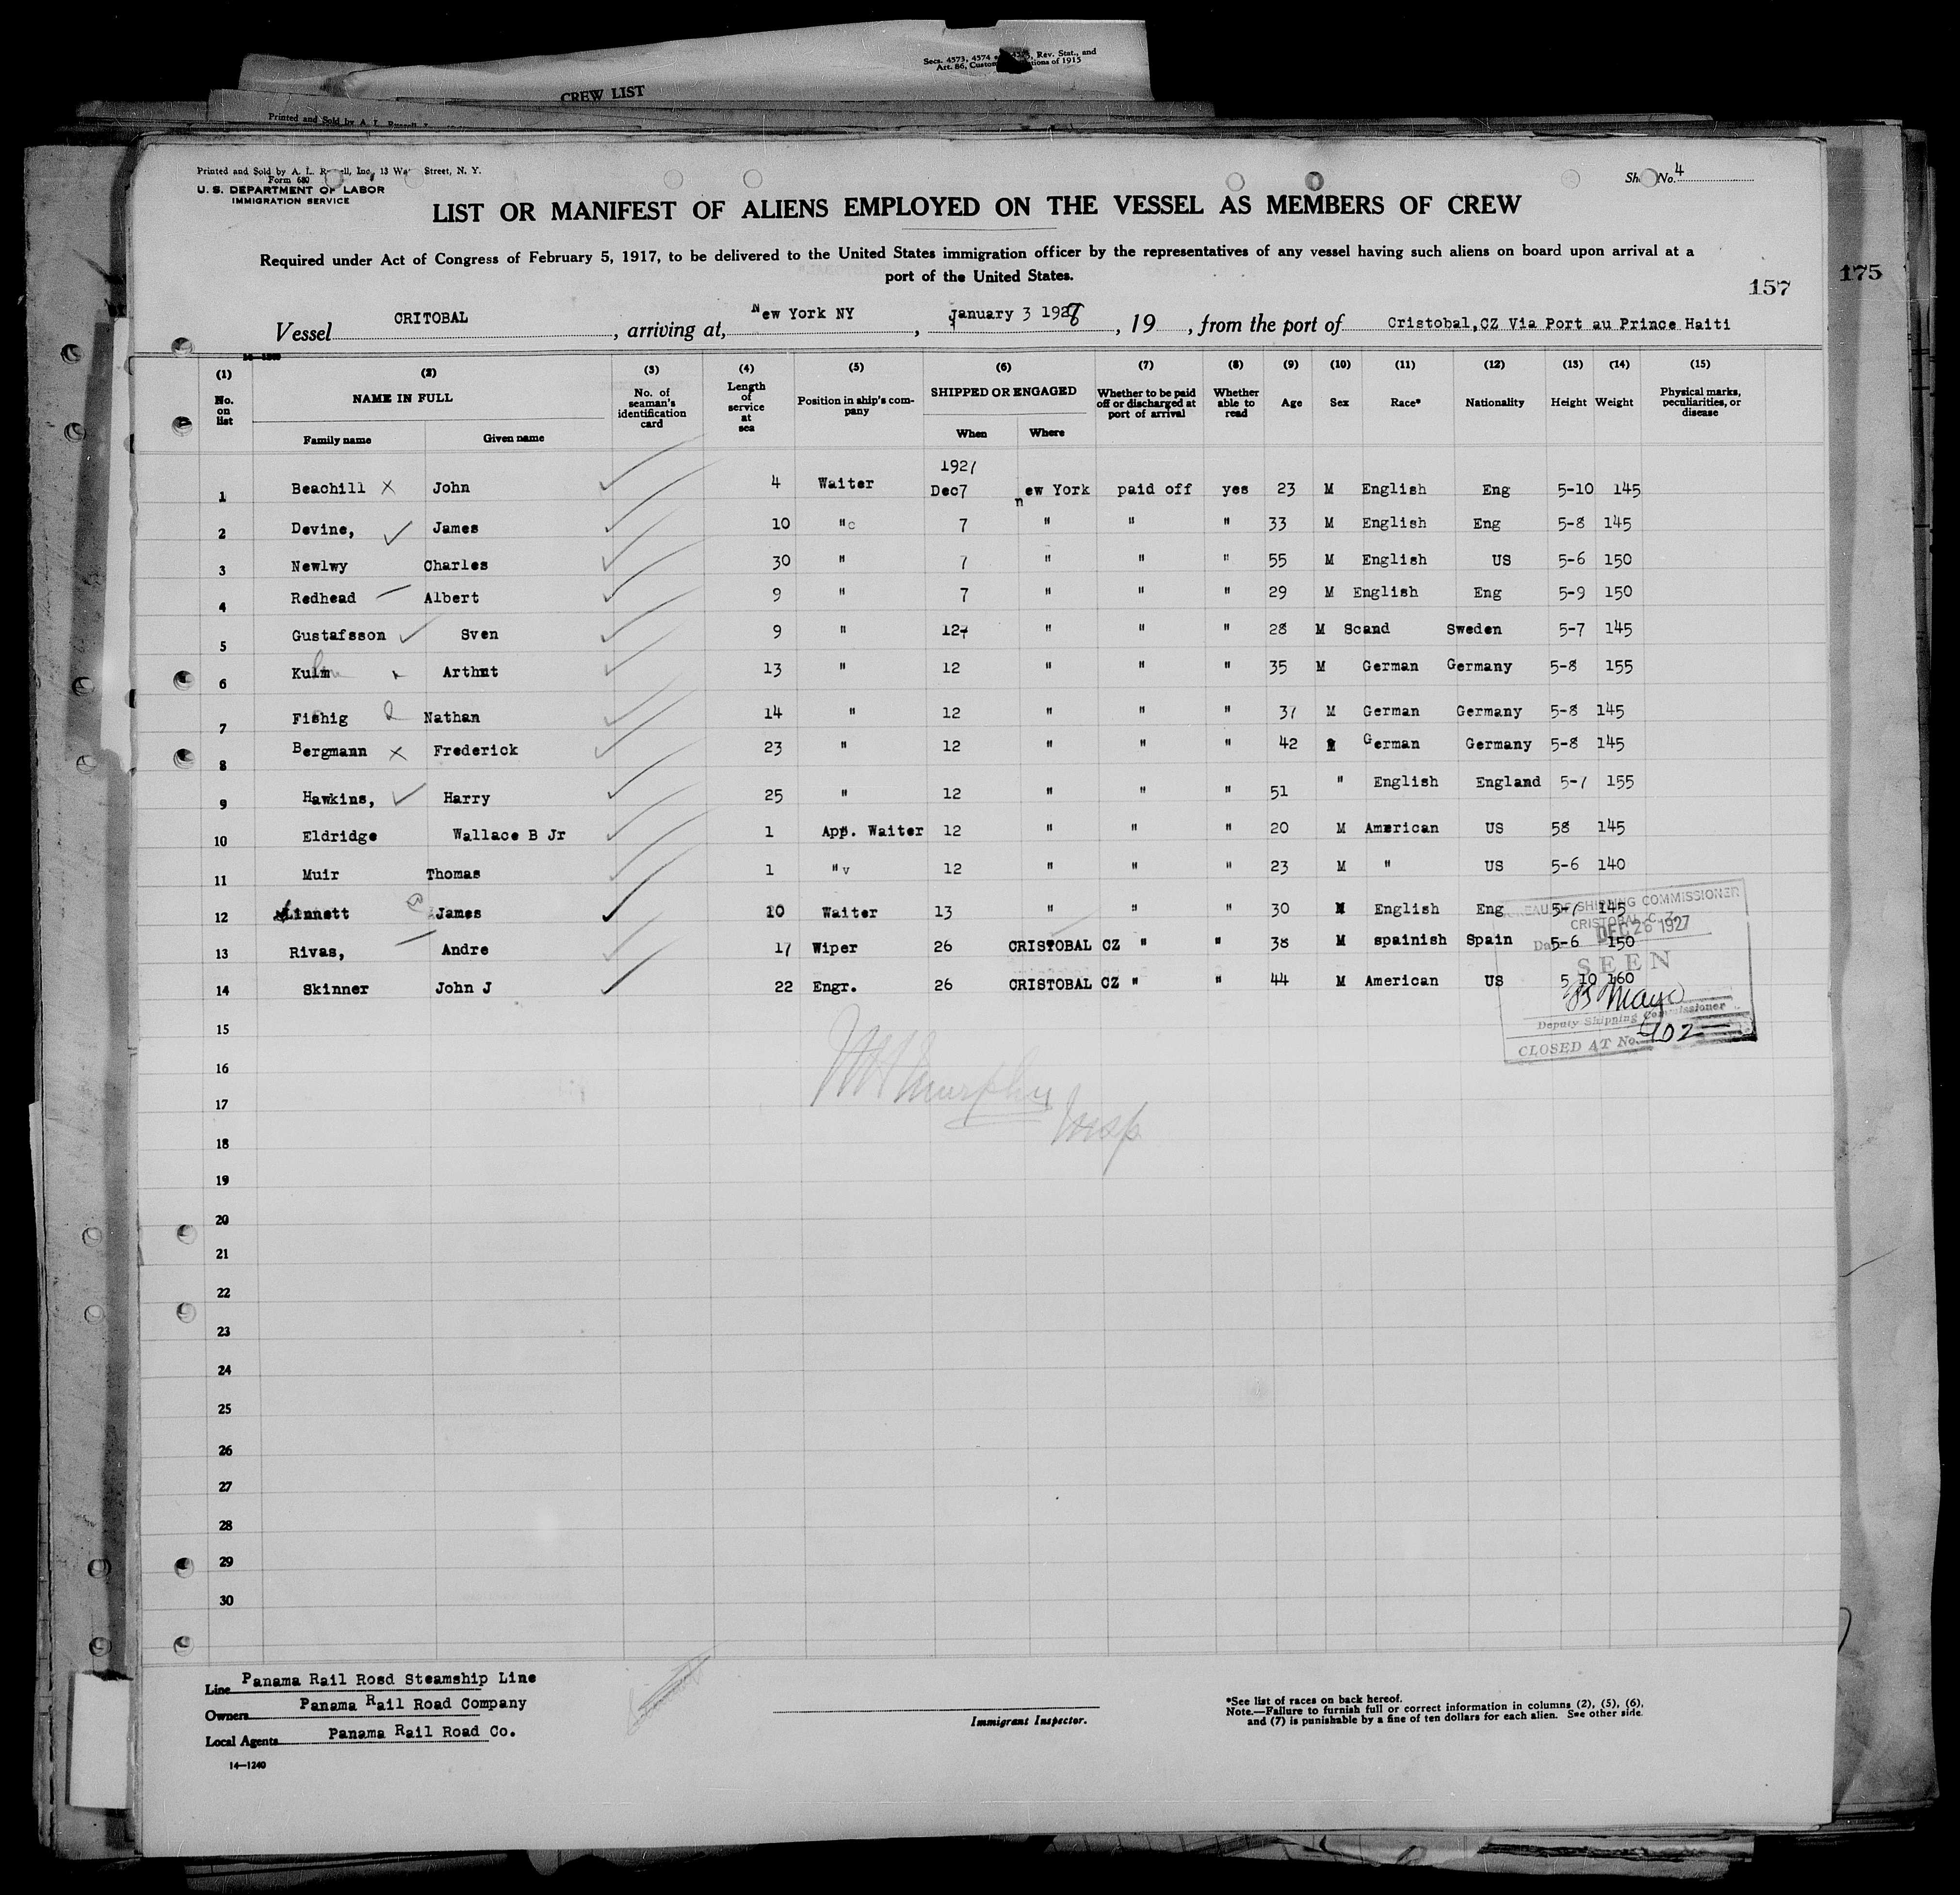 Secs. 4573, 4574 Rev. Stat., and
Art. 86, Custom tions of 1915
CREW LIST
Printed and Sold by A. L.
Printed and Sold by A. L. R ll, Inc, 13 Wa Street, N. Y.
Form 680
U. S. DEPARTMENT OF LABOR
IMMIGRATION SERVICE
Sh No. 4
LIST OR MANIFEST OF ALIENS EMPLOYED ON THE VESSEL AS MEMBERS OF CREW
Required under Act of Congress of February 5, 1917, to be delivered to the United States immigration officer by the representatives of any vessel having such aliens on board upon arrival at a
port of the United States.
175
157
Vessel CRITOBAL, arriving at, New York NY, january 3 1928, 19 , from the port of Cristobal,CZ Via Port au Prince Haiti
(1) (2) (3) (4) (5) (6) (7) (8) (9) (10) (11) (12) (13) (14) (15)
No. on list NAME IN FULL Family name Given name No. of seaman's identification card Length of service at sea Position in ship's company SHIPPED OR ENGAGED When Where Whether to be paid off or discharged at port of arrival Whether able to read Age Sex Race* Nationality Height Weight Physical marks, peculiarities, or disease
1927
1 Beachill x John 4 Waiter Dec7 new York paid off yes 23 M English Eng 5-10 145
2 Devine, James 10 "c 7 " " " 33 M English Eng 5-8 145
3 Newlwy Charles 30 " 7 " " " 55 M English US 5-6 150
4 Redhead Albert 9 " 7 " " " 29 M English Eng 5-9 150
5 Gustafsson Sven 9 " 127 " " " 28 M Scand Sweden 5-7 145
6 Kulm Arthnt 13 " 12 " " " 35 M German Germany 5-8 155
7 Fishig Nathan 14 " 12 " " " 37 M German Germany 5-8 145
8 Bergmann x Frederick 23 " 12 " " " 42 M German Germany 5-8 145
9 Hawkins, Harry 25 " 12 " " " 51 " English England 5-7 155
10 Eldridge Wallace B Jr 1 App. Waiter 12 " " " 20 M American US 58 145
11 Muir Thomas 1 "v 12 " " " 23 M " US 5-6 140
12 Linnett James 10 Waiter 13 " " " 30 M English Eng 5-7 145
13 Rivas, Andre 17 Wiper 26 CRISTOBAL CZ " " 38 M spainish Spain 5-6 150
14 Skinner John J 22 Engr. 26 CRISTOBAL CZ " " 44 M American US 5 10 160
BUREAU OF SHIPPING COMMISSIONER
CRISTOBAL, C. Z.
Da DEC 26 1927
SEEN
Mayo
Deputy Shipping Commissioner
CLOSED AT No. 402
15
16
17
Murphy
Insp
18
19
20
21
22
23
24
25
26
27
28
29
30
Line Panama Rail Rosd Steamship Line
Owners Panama Rail Road Company
Local Agents Panama Rail Road Co.
14—1240
Immigrant Inspector.
*See list of races on back hereof.
Note.—Failure to furnish full or correct information in columns (2), (5), (6),
and (7) is punishable by a fine of ten dollars for each alien. See other side.